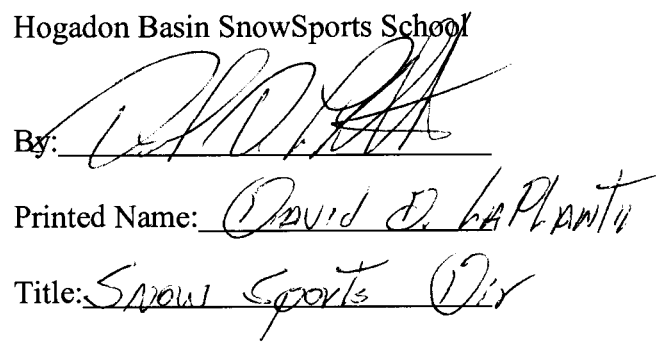 Hogadon Basin SnowSports School
By:
Printed Name: David D. LaPlante
Title: Snow Sports Dir